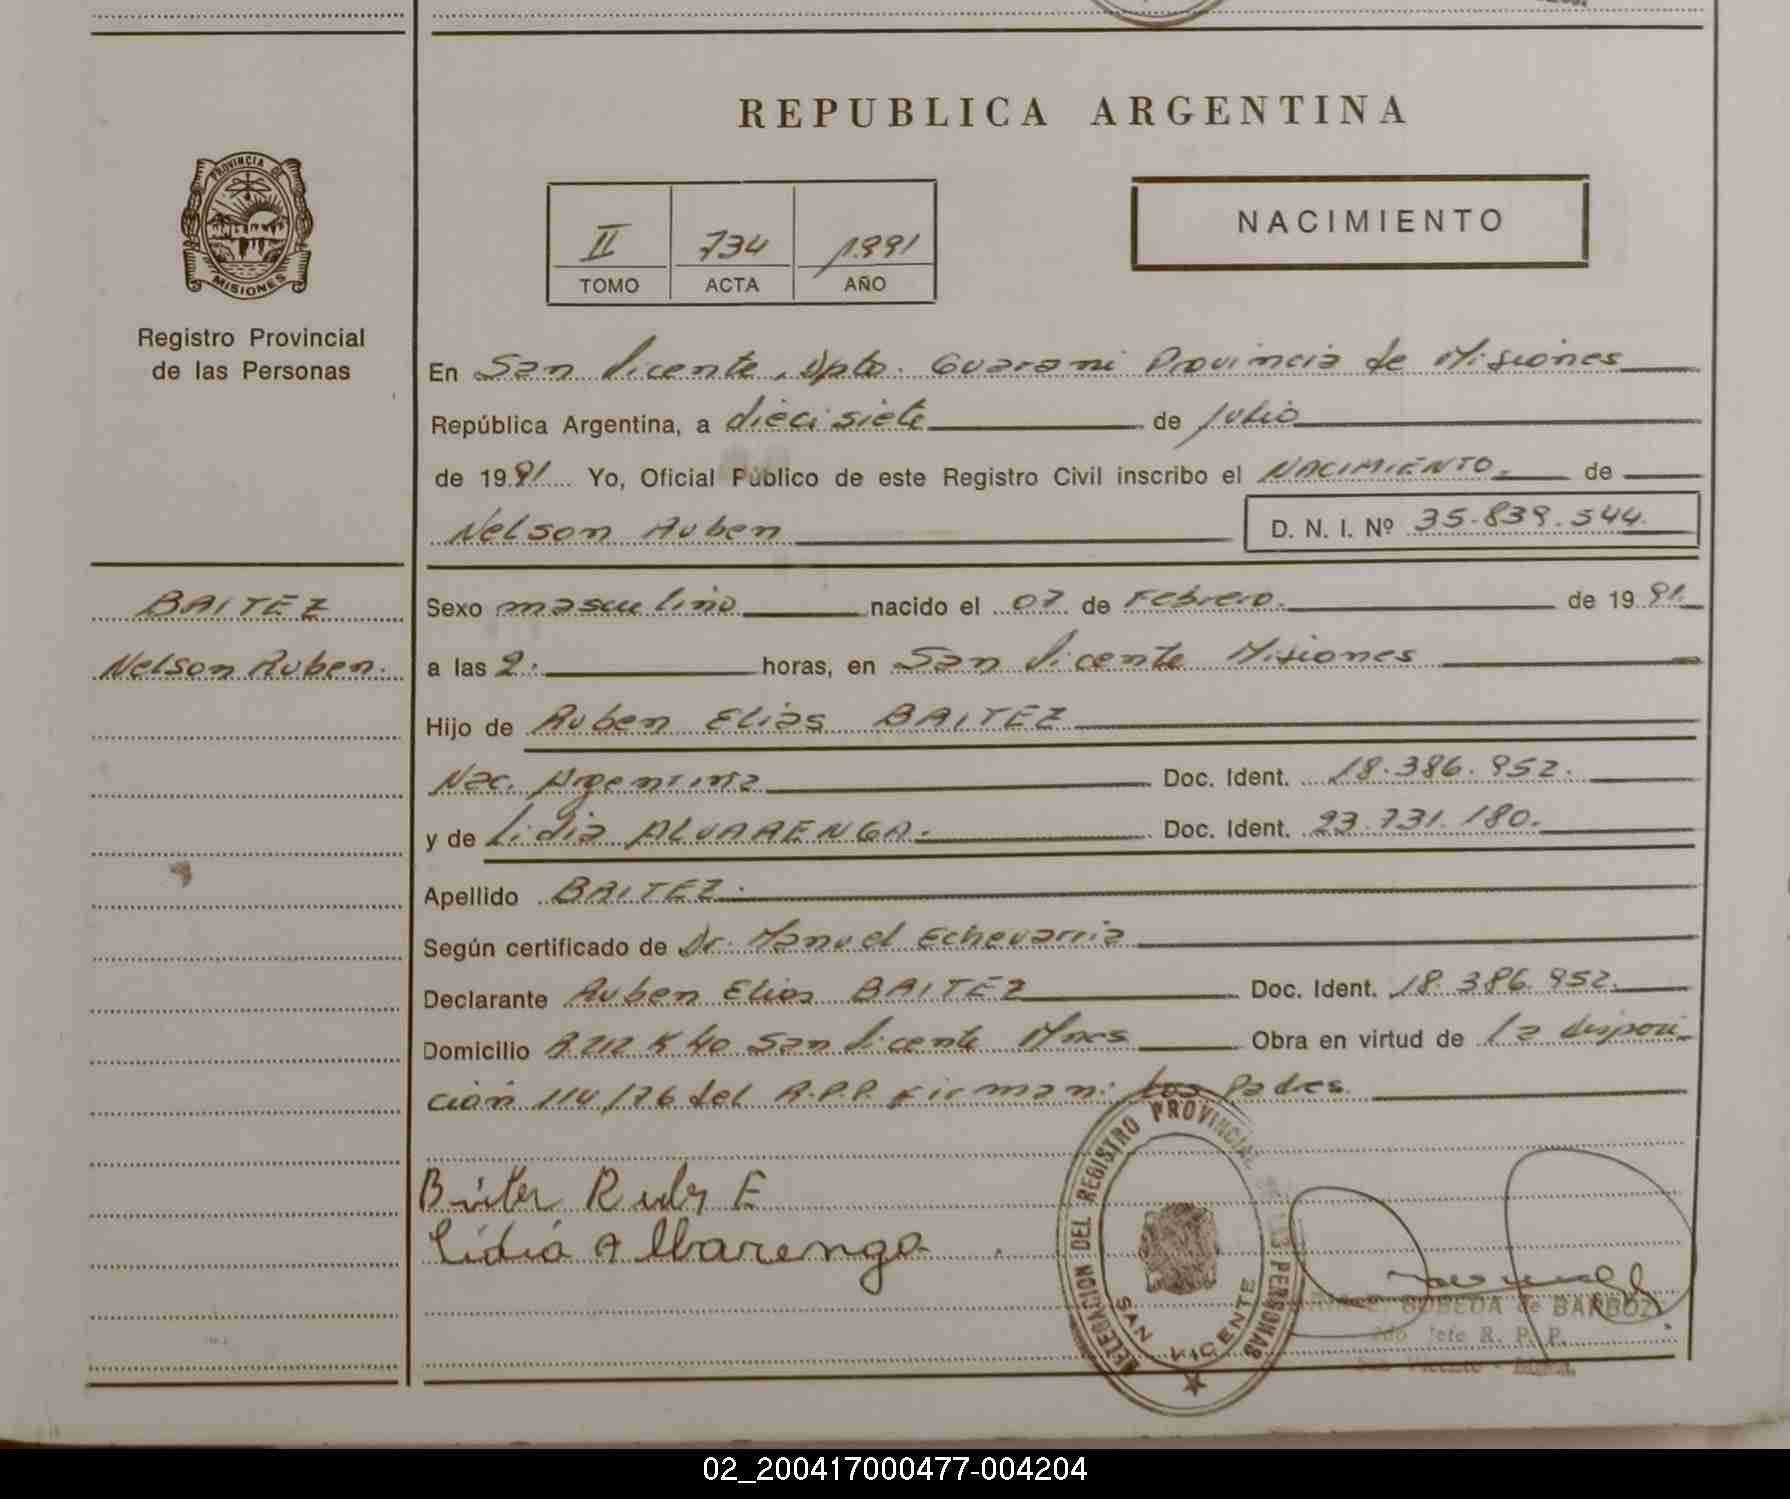 REPUBLICA ARGENTINA
PROVINCIA DE
MISIONES
Registro Provincial
de las Personas
II 734 1991
TOMO ACTA AÑO
NACIMIENTO
En San Vicente, Dpto. Guarani Provincia de Misiones
República Argentina, a diecisiete de Julio
de 1991 Yo, Oficial Público de este Registro Civil inscribo el NACIMIENTO. de
Nelson Ruben D. N. I. Nº 35.839.544.
BAITEZ
Nelson Ruben.
Sexo masculino nacido el 07 de Febrero. de 1991.
a las 2: horas, en San Vicente Misiones
Hijo de Ruben Elias BAITEZ
Nac. Argentina Doc. Ident. 18.386.952.
y de Lidia ALVARENGA. Doc. Ident. 23.731.180.
Apellido BAITEZ.
Según certificado de Dr. Manuel Echevarria
Declarante Ruben Elias BAITEZ Doc. Ident. 18.386.952.
Domicilio R.212 K 40 San Vicente Mnes Obra en virtud de la disposi-
ción 114/76 del R.P.P. Firman: los Padres.
Baitez Rubn E
Lidia Albarenga
DELEGACION DEL REGISTRO PROVINCIAL DE LAS PERSONAS
SAN VICENTE
BOBEDA de BARBOZA
2do Jefe R. P. P.
San Vicente - Mnes.
02_200417000477-004204